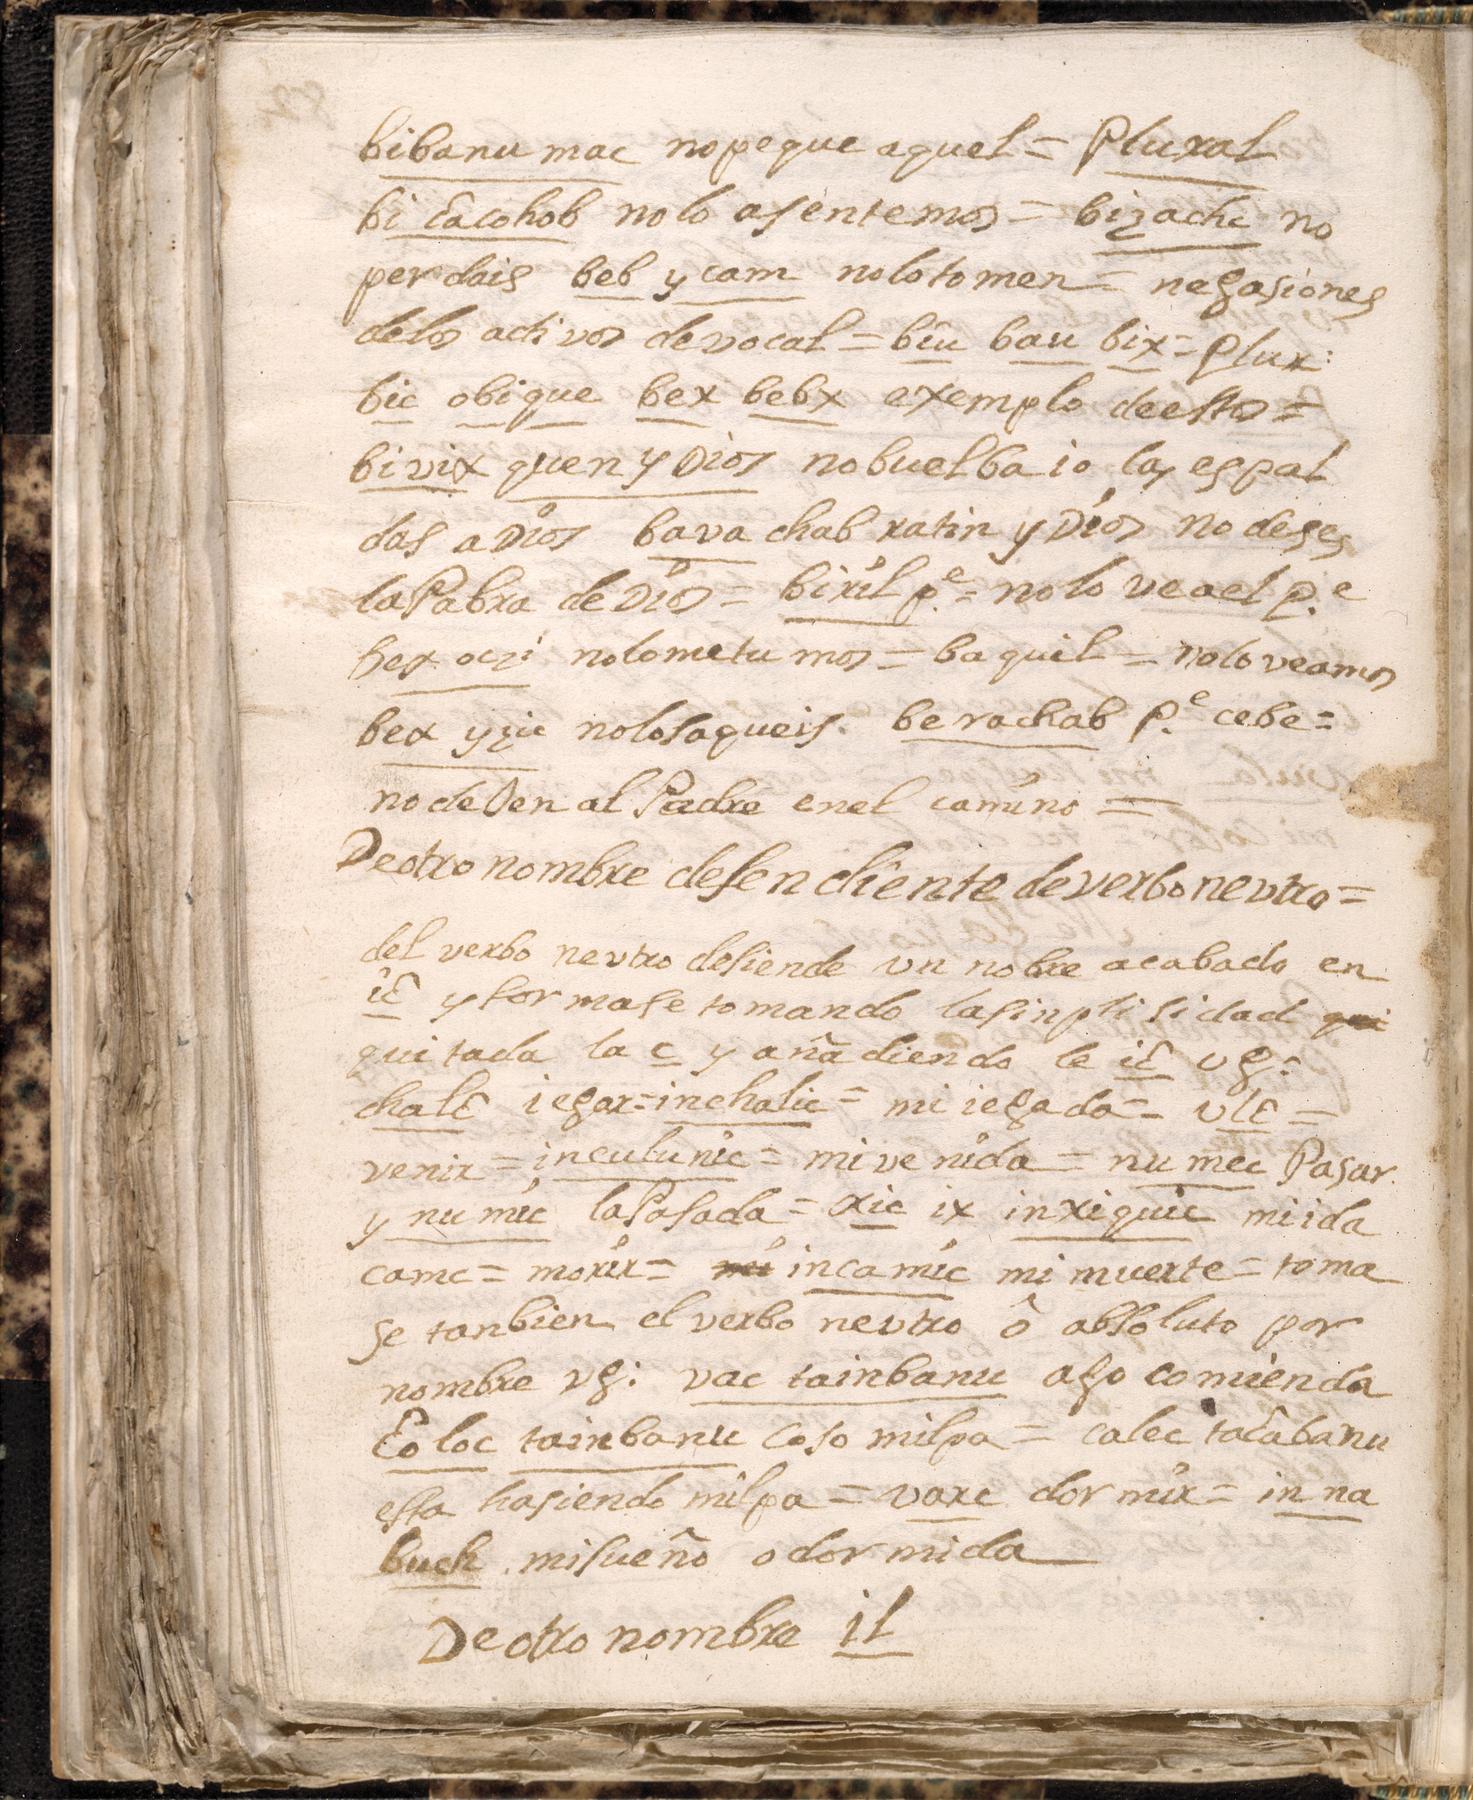 bibanu mac no peque aquel = Plural
bi câcohob no lo asentemos = bizachc no
perdais beb y cam nolo tomen = negasiones
delos activos de vocal = biu bau bix = Plur:
bic obi que bex bebx exemplo de estos =
bi vix quen y Dios no buelba io las espal
das a Dios bava chab ratin y Dios no deses
la Pabra de Dios = biril p.e = no lo vea el p.e
bex oczi nolo metu mos = ba quil = nolo veamos
bex yzic nolo saqueis. be rachab p.e cebe =
no deDen al Padre en el camino =
De otro nombre desendiente de verbo nevtro =
del verbo nevtro desiende vn nobre acabado en
iƐ y formase tomando la sinplisidad qui
quitada la c y añadiendo le iƐ vg:
chalƐ iegar = inchalic = mi iegada = vlƐ =
venir = inculunic = mi venida = nu mec Pasar
y nu mic la Pasada = xic ix inxiquic mi ida
camc = morir = mi incamic mi muerte = toma
se tanbien el verbo nevtro ô absoluto por
nombre vg: vac tainbanu ago comienda
Ɛoloc tainbanu Coso milpa = calec tacâbanu
esta hasiendo milpa = varc dormir = in na
buch mi sueño o dormida
De otro nombre il